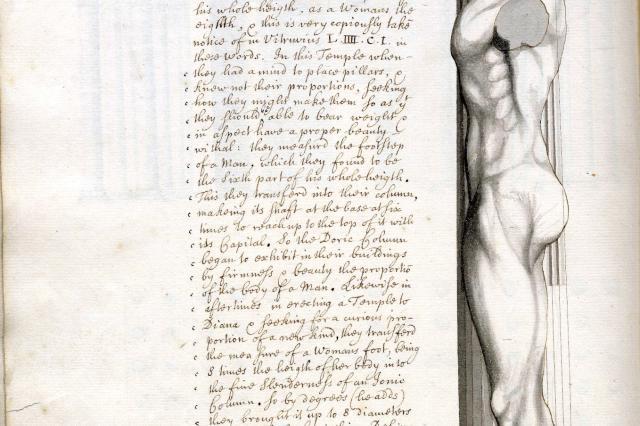 his whole heigth, as a Womans the
eighth, & this is very copiously take
notice of in Vitruvius L. IIII. C. I. in
these words. In this Temple when
they had a mind to place pillars, &
knew not their proportions, seeking
how they might make them so as yt
they should be able to bear weight &
in aspect have a proper beauty
withal: they measurd the footstep
of a Man, which they found to be
the Sixth part of his whole heigth.
This they transferd into their column,
makeing its shaft at the base at six
times to reach up to the top of it with
its Capital. So the Doric Column
began to exhibit in their buildings
by firmness & beauty the proportio
of the body of a Man. Likewise in
aftertimes in erecting a Temple to
Diana & seeking for a curious pro-
portion of a new kind, they transferd
the measure of a Womans foot, being
8 times the heigth of her body into
the fine Slenderness of an Ionic
Column. so by degrees (he adds)
they brought it up to 8 diameters